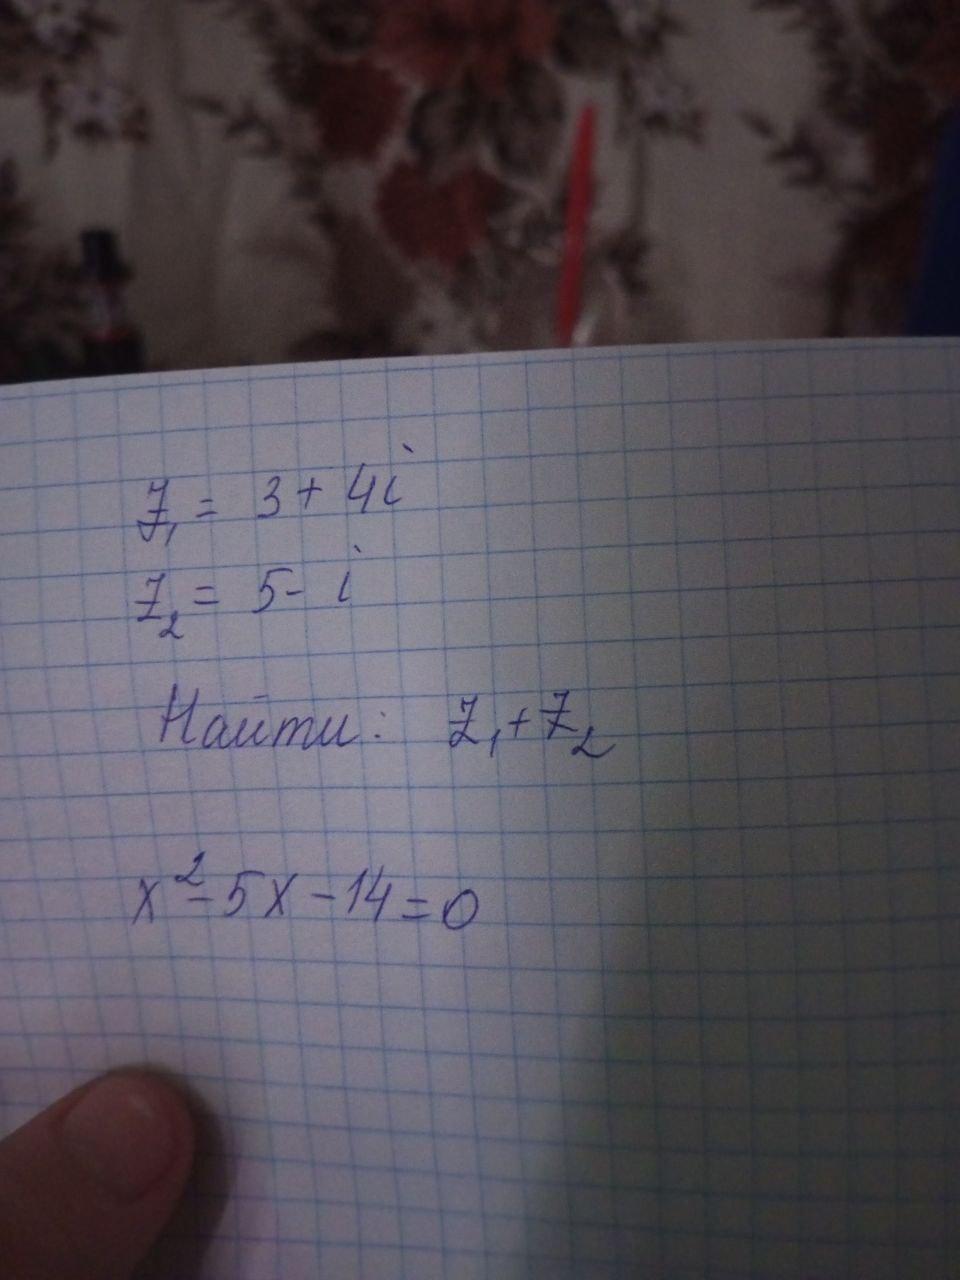 z₁ = 3 + 4i
z₂ = 5 - i
Найти: z₁ + z₂
x² - 5x - 14 = 0